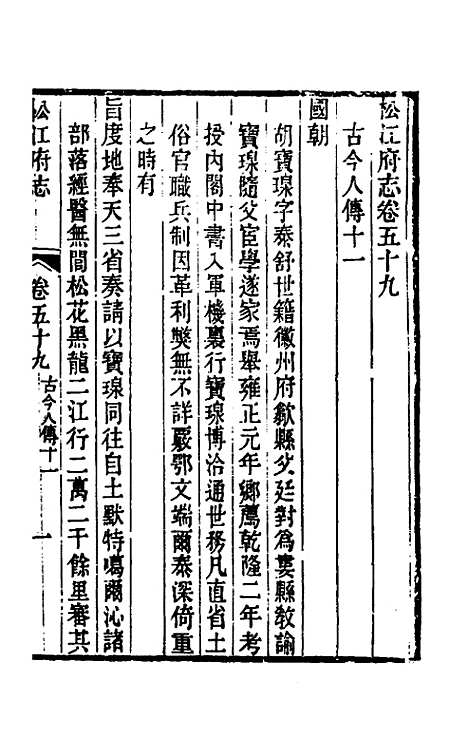 松江府志卷五十九
古今人傳十一
國朝
胡寶瑔字泰舒世籍徽州府歙縣父廷對為婁縣敎諭
寶瑔隨父宦學遂家焉舉雍正元年鄉薦乾隆二年考
授內閣中書入軍機裏行寶瑔博洽通世務凡直省土
俗官職兵制因革利獘無不詳覈鄂文端爾泰深倚重
之時有
旨度地奉天三省奏請以寶瑔同往自土默特噶爾沁諸
部落經醫無閭松花黑龍二江行二萬二千餘里審其
松江府志
卷五十九 古今人傳十一
一